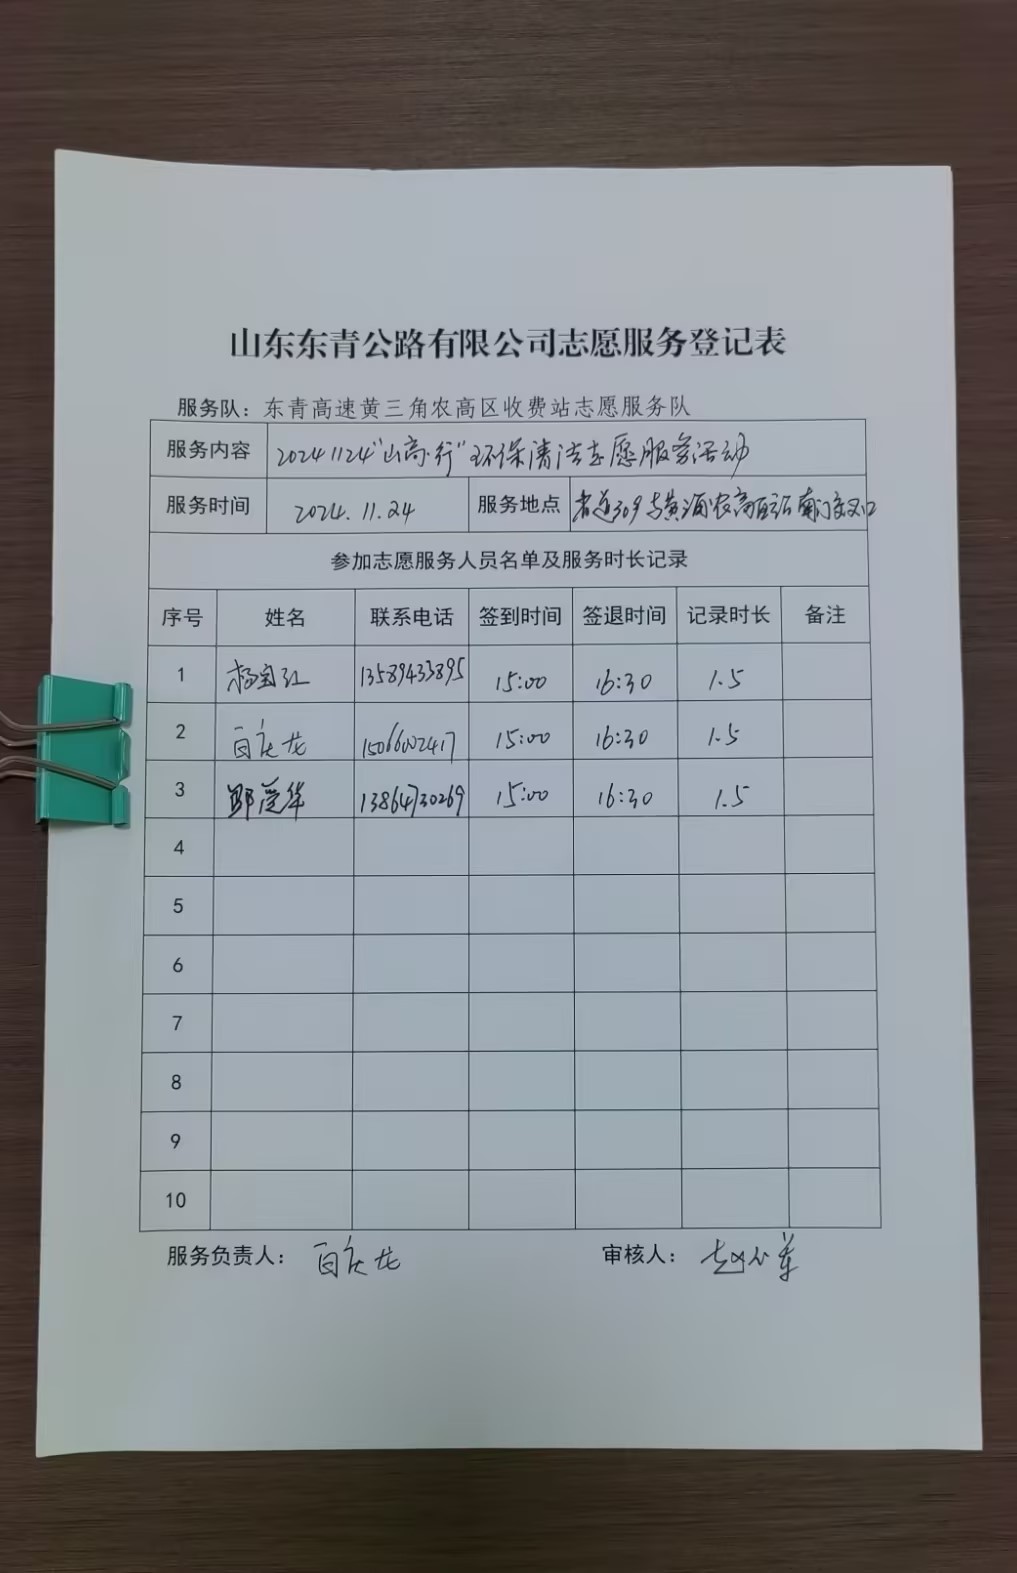 山东东青公路有限公司志愿服务登记表
服务队：东青高速黄三角农高区收费站志愿服务队
服务内容 20241124"山高·行"环保清洁志愿服务活动
服务时间 2024.11.24 服务地点 省道309与黄海农高区南门交叉口
参加志愿服务人员名单及服务时长记录
序号 姓名 联系电话 签到时间 签退时间 记录时长 备注
1 杨宝红 13589433895 15:00 16:30 1.5
2 百庆龙 15:00 16:30 1.5
3 13864730269 15:00 16:30 1.5
4
5
6
7
8
9
10
服务负责人：百庆龙 审核人：赵